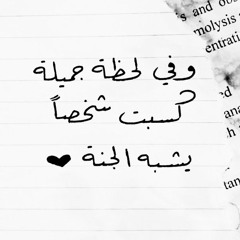 s and ob
molysis
entrati
وفي لحظة جميلة
كسبت شخصاً
يشبه الجنة ❤
ed
ana
tan